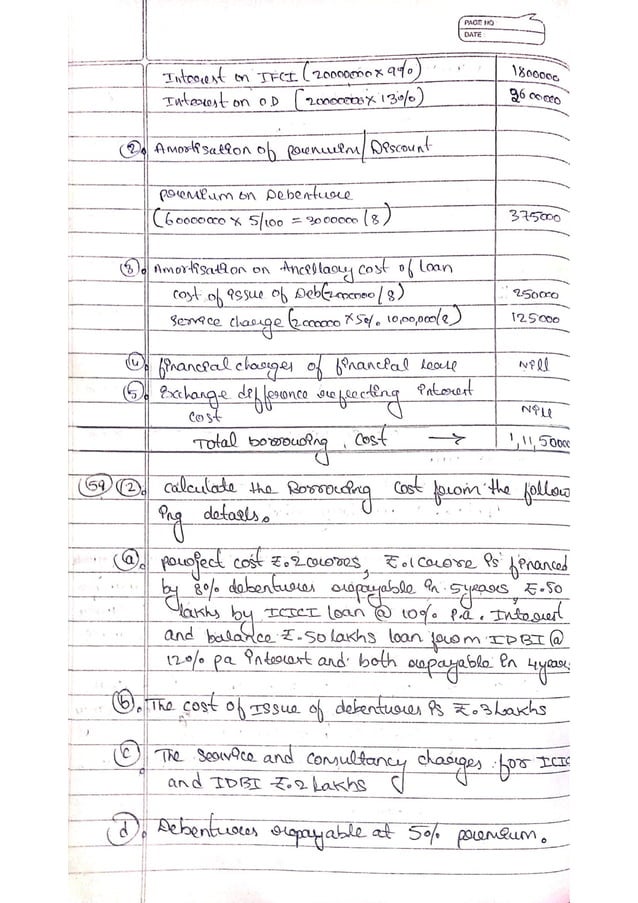 PAGE NO
DATE
Interest on IFCI (20000000 x 9%) 1800000
Interest on OD (20000000 x 13%) 2600000
(2). Amortisation of premium/Discount
premium on Debenture
(60000000 x 5/100 = 3000000/8) 375000
(3). Amortisation on Ancillary cost of loan
cost of issue of Deb(2000000/8) 250000
Service charge (2000000 x 5% 10,00,000/8) 125000
(4). financial charges of financial lease Nill
(5). Exchange difference reflecting interest
cost Nill
Total borrowing cost → 1,11,50000
(59) (2). calculate the Borrowing cost from the follow
ing details.
(a). project cost ₹.2 crores, ₹.1 crore is financed
by 8% debentures repayable in 5 years, ₹.50
lakhs by ICICI loan @ 10% p.a. Interest
and balance ₹.50 lakhs loan from IDBI @
12% pa interest and both repayable in 4 years
(b). The cost of Issue of debentures is ₹.3 Lakhs
(c) The service and consultancy charges for ICIC
and IDBI ₹.2 Lakhs
(d). Debentures repayable at 5% premium.